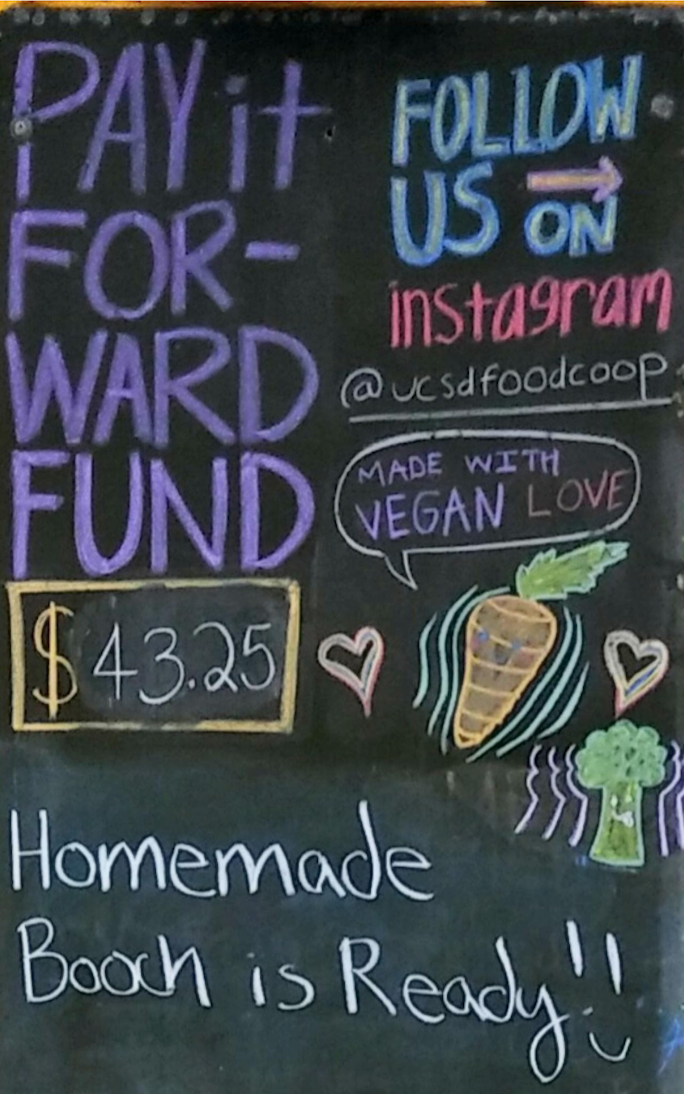 PAY it
FOR-
WARD
FUND
$43.25
FOLLOW
US →
ON
instagram
@ucsdfoodcoop
MADE WITH
VEGAN LOVE
Homemade
Booch is Ready!!